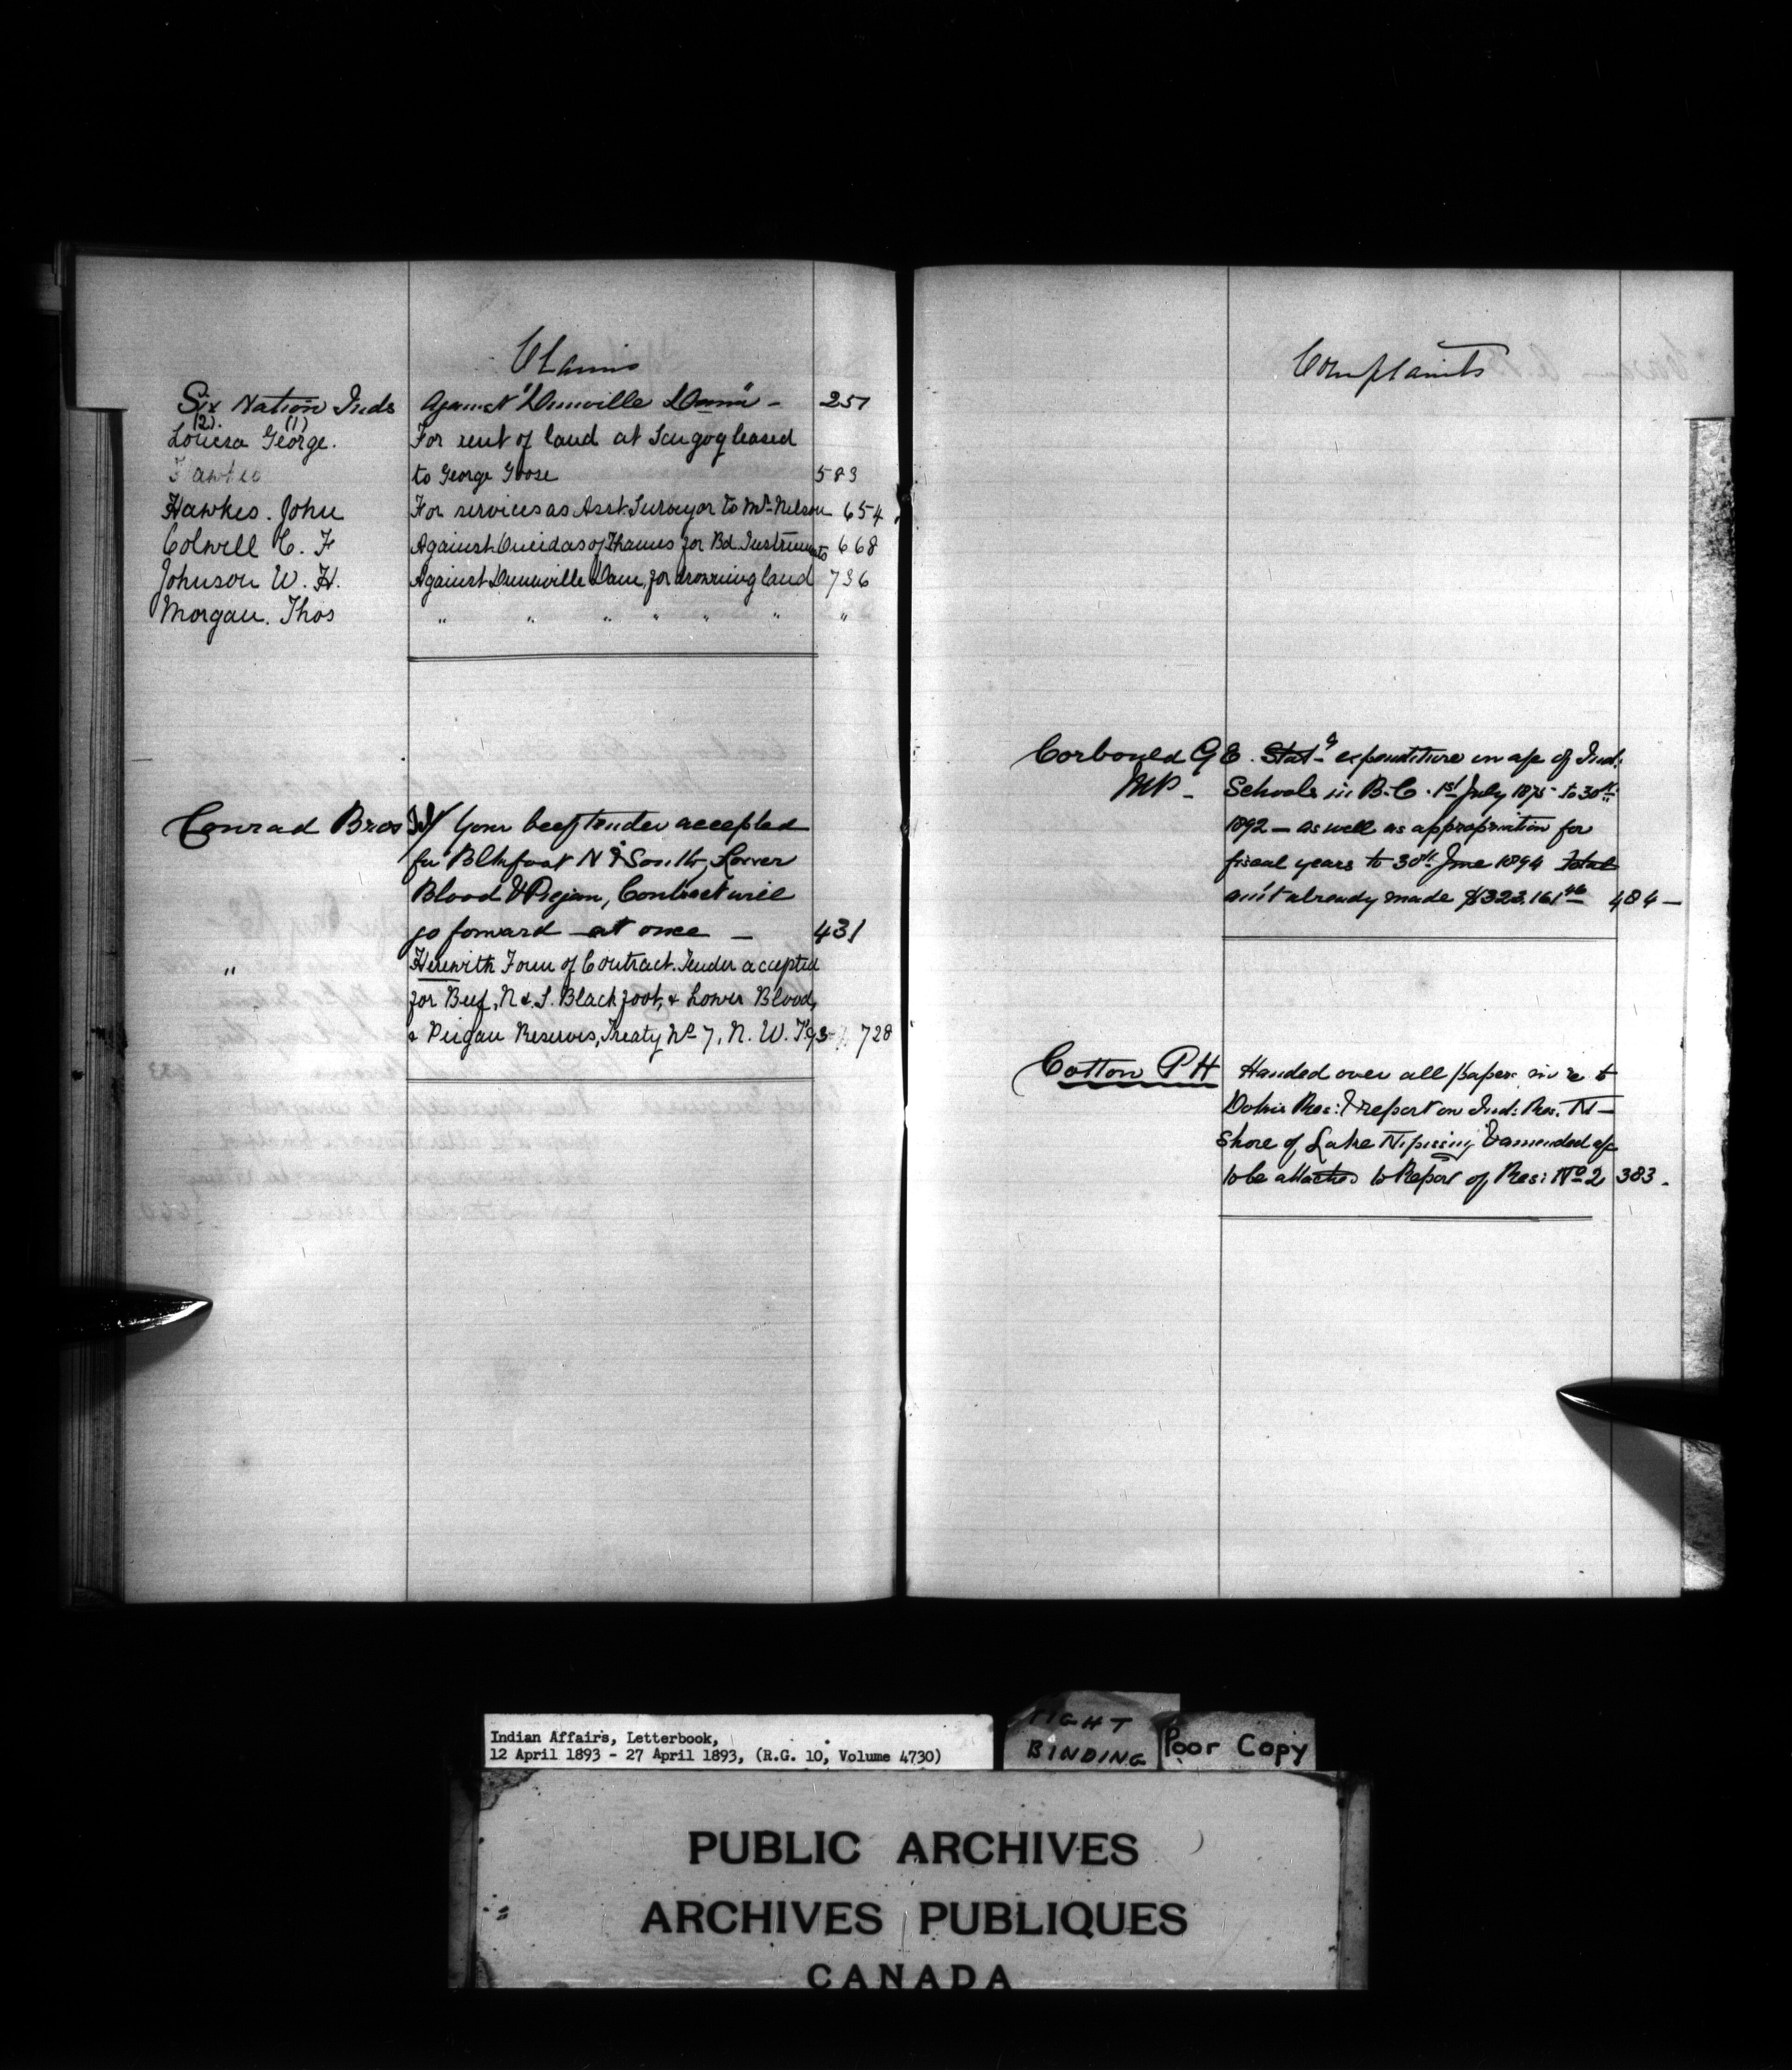 Claims
Six Nation Inds Against "Dunville Dam" - 251
(2). (1)
Louisa George. For rent of land at Scugog leased
Hawkes to George Goose 583
Hawkes. John For services as Asst. Surveyor to Mr. Nelson 654
Colwell C. F Against Oneidas of Thames for Bd. Instruments 668
Johnson W. H. Against Dunnville Dam, for drowning land 736
Morgan. Thos " " " " " " "
Conrad Bros Your beef tender accepted
for Blkfoot N & South, Lower
Blood & Piegan, Contract will
go forward at once - 431
" Herewith Form of Contract. Tender accepted
for Beef, N. & S. Blackfoot, & Lower Blood,
& Peigan Reserves, Treaty No 7, N. W. T. 93- 728
Complaints
Corbould G E. Stat - g expenditure on a/c of Ind:
MP - Schools in B.C. 1st July 1875 to 30th
1892 - as well as appropriation for
fiscal years to 30th June 1894 Total
am't already made $323.161 46 484 -
Cotton P H Handed over all papers in re to
Dokis Res: & report on Ind: Res. N -
Shore of Lake Nipissing & amended
to be attached to Report of Res: No 2 383.
Indian Affairs, Letterbook,
12 April 1893 - 27 April 1893, (R.G. 10, Volume 4730)
TIGHT
BINDING
Poor Copy
PUBLIC ARCHIVES
ARCHIVES PUBLIQUES
CANADA